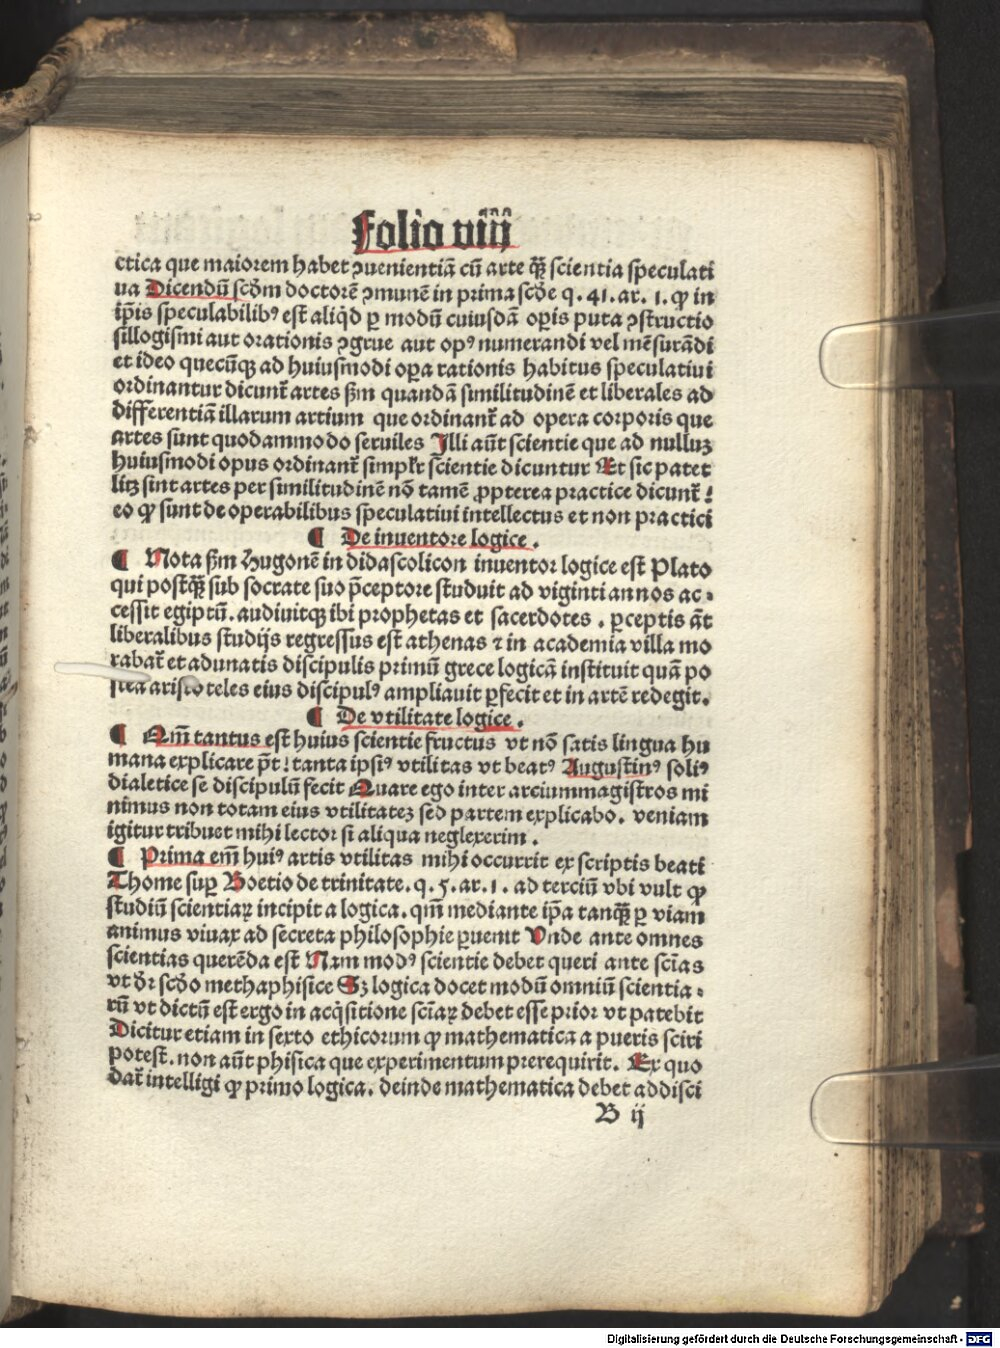 Folio viiij
ctica que maiorem habet ↄuenientiā cū arte q̄ꝫ scientia speculati
ua Dicendū scd̄m doctorē ↄmunē in prima scd̄e q. 41. ar. 1. ꝙ in
ip̄is speculabilibꝰ est aliq̇d ꝑ modū cuiusdā oꝑis puta ↄstructio
sillogismi aut orationis ↄgrue aut opꝰ numerandi vel mēsurādi
et ideo quecūqꝫ ad huiusmodi oꝑa rationis habitus speculatiui
ordinantur dicunt̄ artes ẜm quandā similitudinē et liberales ad
differentiā illarum artium que ordinant̄ ad opera corporis que
artes sunt quodammodo seruiles Illi aūt scientie que ad nulluꝫ
huiusmodi opus ordinant̄ simpl̄r scientie dicuntur Et sic patet
litꝫ sint artes per similitudinē nō tamē ꝓpterea practice dicunt̄ :
eo ꝙ sunt de operabilibus speculatiui intellectus et non practici
¶ De inuentore logice .
¶ Nota ẜm Hugonē in didascolicon inuentor logice est Plato
qui postq̄ꝫ sub socrate suo p̄ceptore studuit ad viginti annos ac⸗
cessit egiptū. audiuitqꝫ ibi prophetas et sacerdotes . ꝑceptis āt
liberalibus studijs regressus est athenas ⁊ in academia villa mo
rabat̄ et adunatis discipulis primū grece logicā instituit quā po
stea aristoteles eius discipulꝰ ampliauit ꝑfecit et in artē redegit.
¶ De vtilitate logice .
¶ Qm̄ tantus est huius scientie fructus vt nō satis lingua hu
mana explicare p̄t : tanta ipsiꝰ vtilitas vt beatꝰ Augustinꝰ soliꝰ
dialetice se discipulū fecit Quare ego inter arcium magistros mi
nimus non totam eius vtilitateꝫ sed partem explicabo. veniam
igitur tribuet mihi lector si aliqua neglexerim .
¶ Prima em̄ huiꝰ artis vtilitas mihi occurrit ex scriptis beati
Thome suꝑ Boetio de trinitate. q. 5. ar. 1. ad terciū vbi vult ꝙ
studiū scientiaꝝ incipit a logica. qm̄ mediante ip̄a tanq̄ꝫ ꝑ viam
animus viuax ad secreta philosophie ꝑuenit Vnde ante omnes
scientias querēda est Nam modꝰ scientie debet queri ante scīas
vt dr̄ scd̄o methaphisice Sꝫ logica docet modū omniū scientia⸗
rū vt dictū est ergo in acq̇sitione scīaꝝ debet esse prior vt patebit
Dicitur etiam in sexto ethicorum ꝙ mathematica a pueris sciri
potest. non aūt phisica que experimentum prerequirit. Ex quo
dat̄ intelligi ꝙ primo logica. deinde mathematica debet addisci
B ij
Digitalisierung gefördert durch die Deutsche Forschungsgemeinschaft - DFG